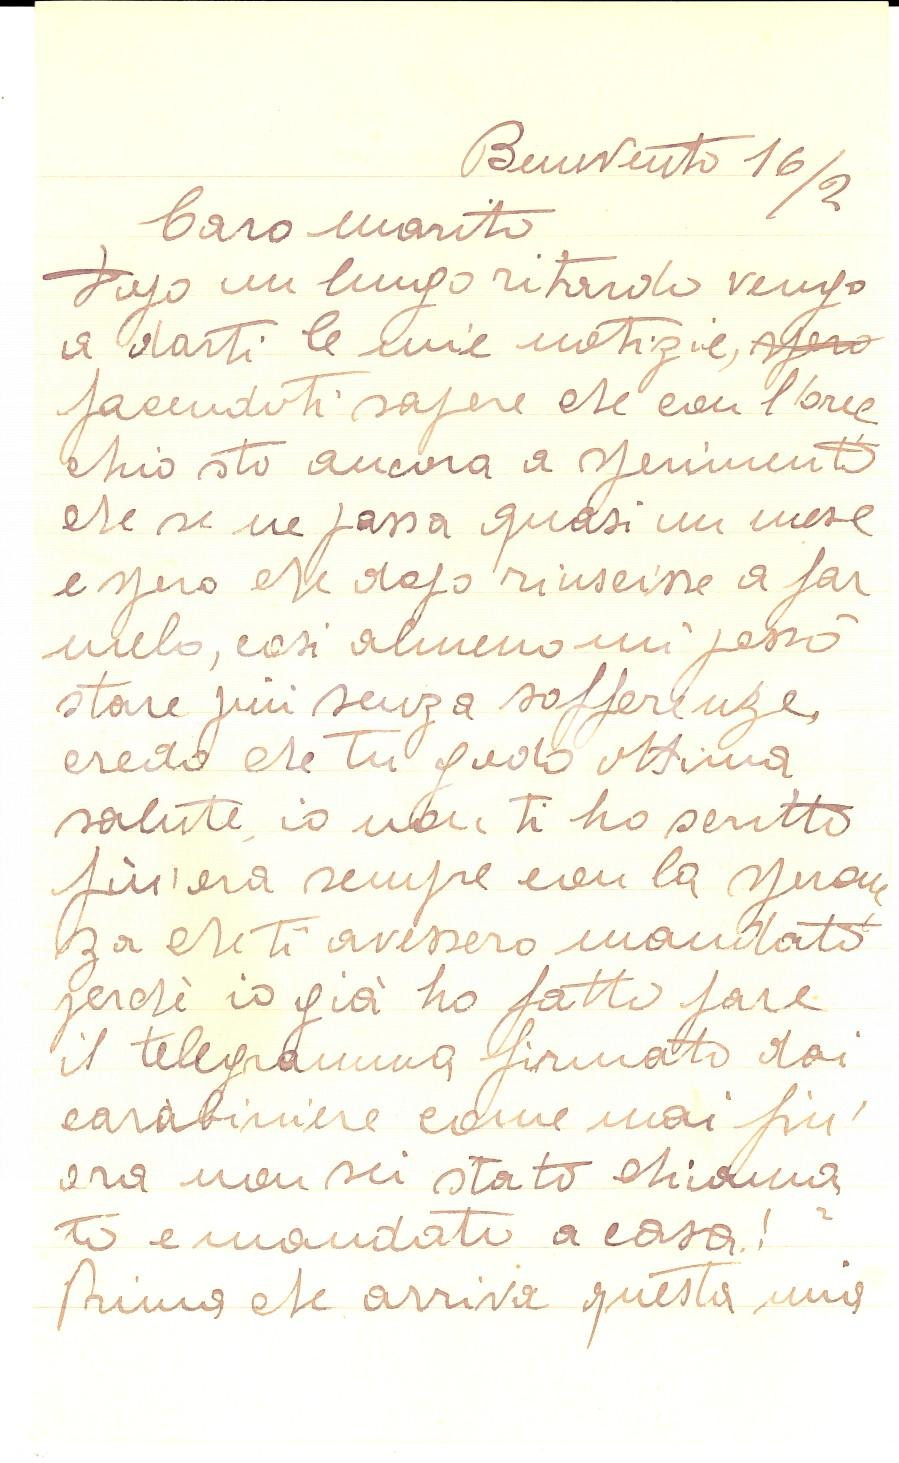 Benevento 16/2
Caro marito
Dopo un lungo ritardo vengo
a darti le mie notizie, spero
facendoti sapere che con l'orec
chio sto ancora a sperimenti
che se ne passa quasi un mese
e spero che dopo riuscisse a far
melo, così almeno mi posso
stare più senza sofferenze,
credo che tu godo ottima
salute, io non ti ho scritto
fin'ora sempre con la speran
za che ti avessero mandato
perchè io già ho fatto fare
il telegramma firmato dai
carabiniere come mai fin'
ora non sei stato chiama
to e mandato a casa!
Prima che arriva questa mia